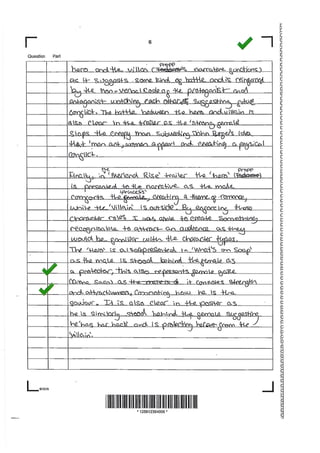 6
Question Part
Propp
hero and the villan ( narrative functions)
as it suggests some kind of battle and is reinforced
by the non-verbal code of the protagonist and
antagonist watching each other suggesting future
conflict. The battle between the hero and villain is
also clear in the trailer as the 'strong' female
slaps the creepy man. subverting John Berger's idea
that 'man act, women appear' and creating a physical
conflict.
the Propp
Finally, in 'Rise' trailer the 'hero'
is presented to the narrative as the male
'princess'
comforts the female, creating a theme of romance,
while the 'villain' is outside. By these
character roles I was able to create something
recognisable to attract an audience as they
would be familiar with the character types.
The 'Hero' is also represented in 'What's on Soap'
as the male is stood behind the female as
a protector, This also represents female gaze
as it connotes strength
and attractiveness, connoting how he is the
saviour. It is also clear in the poster as
he is similarly stood behind the female suggesting
he 'has her back' and is protecting her from the
'villain'.